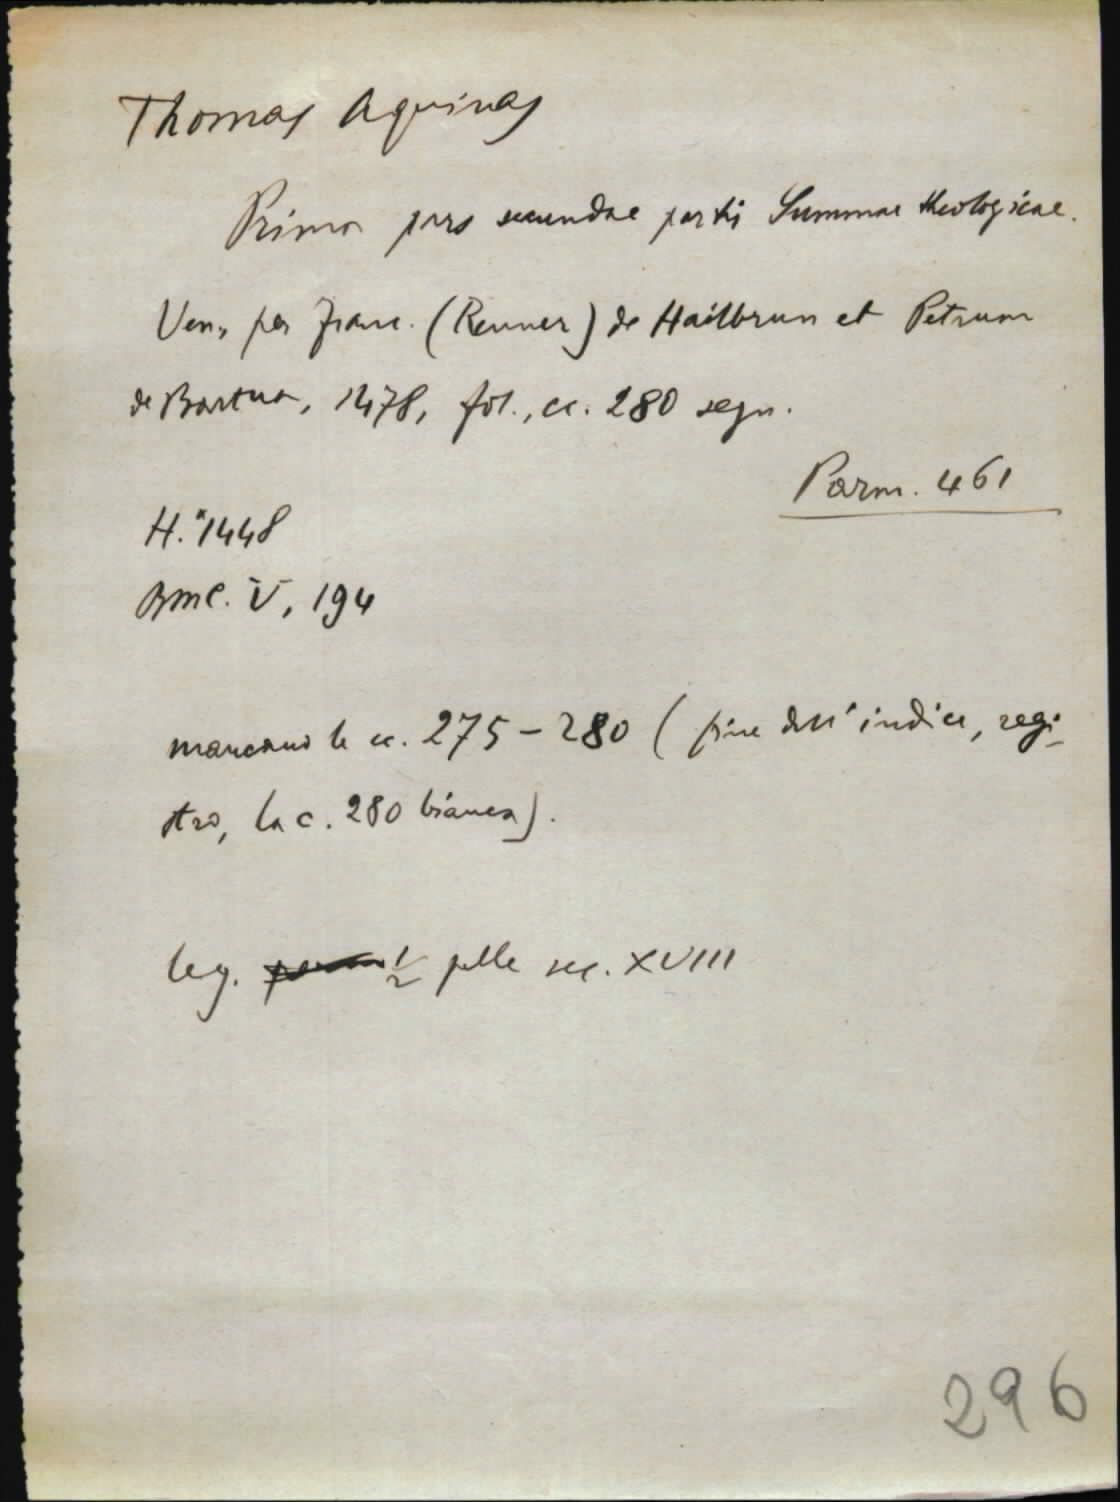 Thomas Aquinas
Prima pars secundae partis Summae theologicae.
Ven., per Franc. (Renner) de Hailbrun et Petrum
de Bartua, 1478, fol., cc. 280 segn.
Parm. 461
H.*1448
BMC. V, 194
mancano le cc. 275-280 (fine dell'indice, regi-
stro, la c. 280 bianca).
leg. 1/2 pelle sec. XVIII
296